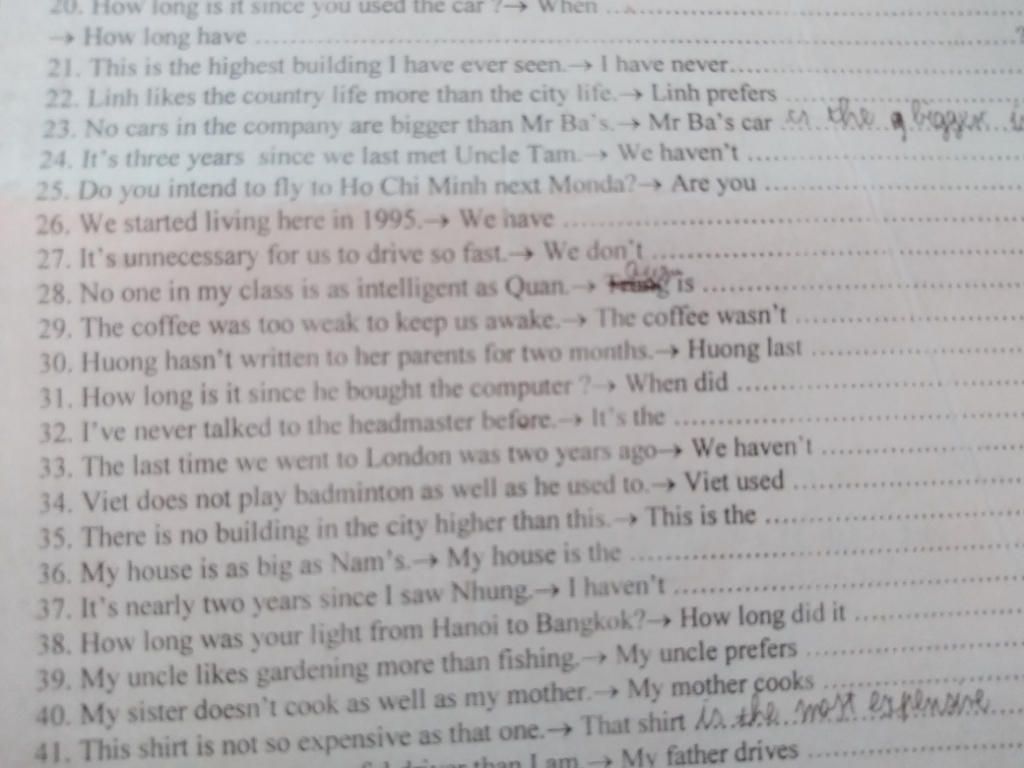 20. How long is it since you used the car ?→ When ..........
→ How long have ..........?
21. This is the highest building I have ever seen.→ I have never..........
22. Linh likes the country life more than the city life.→ Linh prefers ..........
23. No cars in the company are bigger than Mr Ba's.→ Mr Ba's car is the bigger
24. It's three years since we last met Uncle Tam.→ We haven't ..........
25. Do you intend to fly to Ho Chi Minh next Monda?→ Are you ..........
26. We started living here in 1995.→ We have ..........
27. It's unnecessary for us to drive so fast.→ We don't ..........
28. No one in my class is as intelligent as Quan.→ is ..........
29. The coffee was too weak to keep us awake.→ The coffee wasn't ..........
30. Huong hasn't written to her parents for two months.→ Huong last ..........
31. How long is it since he bought the computer ?→ When did ..........
32. I've never talked to the headmaster before.→ It's the ..........
33. The last time we went to London was two years ago→ We haven't ..........
34. Viet does not play badminton as well as he used to.→ Viet used ..........
35. There is no building in the city higher than this.→ This is the ..........
36. My house is as big as Nam's.→ My house is the ..........
37. It's nearly two years since I saw Nhung.→ I haven't ..........
38. How long was your light from Hanoi to Bangkok?→ How long did it ..........
39. My uncle likes gardening more than fishing.→ My uncle prefers ..........
40. My sister doesn't cook as well as my mother.→ My mother cooks ..........
41. This shirt is not so expensive as that one.→ That shirt is the most expensive
than I am → My father drives ..........